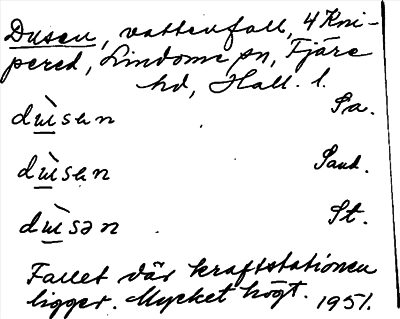 Dusen, vattenfall, 4 Kni-
pered, Lindome sn, Fjäre
hd, Hall. l.
dùsen Sa.
dùsen Sand.
dùsən St.
Fallet där kraftstationen
ligger. Mycket högt. 1951.